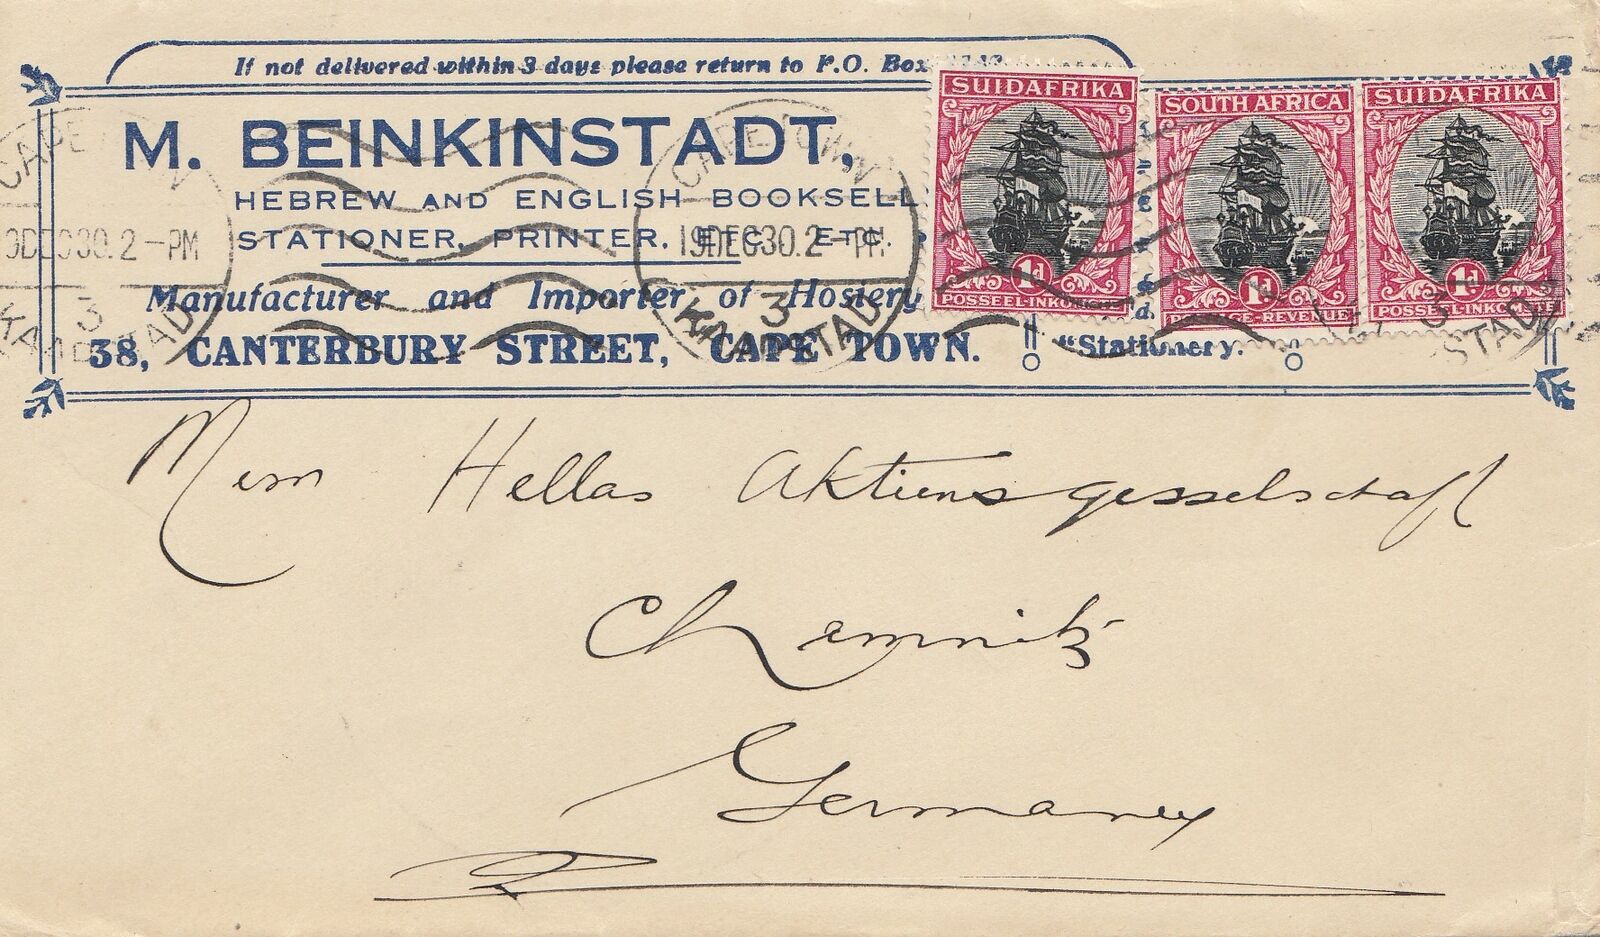 If not delivered within 3 days please return to P.O. Box
M. BEINKINSTADT,
HEBREW AND ENGLISH BOOKSELL
STATIONER, PRINTER, ETC. ETC.
Manufacturer and Importer of Hosiery
38, CANTERBURY STREET, CAPE TOWN.
"Stationery.
SUIDAFRIKA
1d
POSSEEL-INKOMSTE
SOUTH AFRICA
1d
POSTAGE-REVENUE
SUIDAFRIKA
1d
POSSEEL-INKOMSTE
CAPE TOWN
19DEC30.2-PM
3
KAAPSTAD
CAPE TOWN
19DEC30.2-PM
3
KAAPSTAD
3
STAD
Hellas Aktiensgesselschaft
Chemnitz
Germany